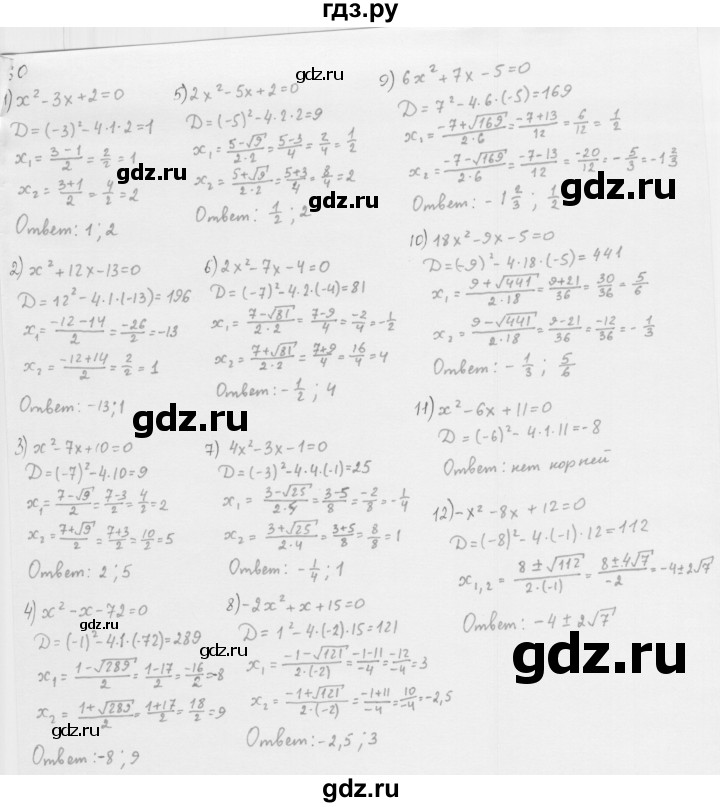 гдз.ру
60
1) x² - 3x + 2 = 0
D = (-3)² - 4·1·2 = 1
x₁ = (3-1)/2 = 2/2 = 1
x₂ = (3+1)/2 = 4/2 = 2
Ответ: 1; 2
2) x² + 12x - 13 = 0
D = 12² - 4·1·(-13) = 196
x₁ = (-12-14)/2 = -26/2 = -13
x₂ = (-12+14)/2 = 2/2 = 1
Ответ: -13; 1
3) x² - 7x + 10 = 0
D = (-7)² - 4·10 = 9
x₁ = (7-√9)/2 = (7-3)/2 = 4/2 = 2
x₂ = (7+√9)/2 = (7+3)/2 = 10/2 = 5
Ответ: 2; 5
4) x² - x - 72 = 0
D = (-1)² - 4·1·(-72) = 289
x₁ = (1-√289)/2 = (1-17)/2 = -16/2 = -8
x₂ = (1+√289)/2 = (1+17)/2 = 18/2 = 9
Ответ: -8; 9
5) 2x² - 5x + 2 = 0
D = (-5)² - 4·2·2 = 9
x₁ = (5-√9)/(2·2) = (5-3)/4 = 2/4 = 1/2
x₂ = (5+√9)/(2·2) = (5+3)/4 = 8/4 = 2
Ответ: 1/2; 2
6) 2x² - 7x - 4 = 0
D = (-7)² - 4·2·(-4) = 81
x₁ = (7-√81)/(2·2) = (7-9)/4 = -2/4 = -1/2
x₂ = (7+√81)/(2·2) = (7+9)/4 = 16/4 = 4
Ответ: -1/2; 4
7) 4x² - 3x - 1 = 0
D = (-3)² - 4·4·(-1) = 25
x₁ = (3-√25)/(2·4) = (3-5)/8 = -2/8 = -1/4
x₂ = (3+√25)/(2·4) = (3+5)/8 = 8/8 = 1
Ответ: -1/4; 1
8) -2x² + x + 15 = 0
D = 1² - 4·(-2)·15 = 121
x₁ = (-1-√121)/(2·(-2)) = (-1-11)/-4 = -12/-4 = 3
x₂ = (-1+√121)/(2·(-2)) = (-1+11)/-4 = 10/-4 = -2,5
Ответ: -2,5; 3
9) 6x² + 7x - 5 = 0
D = 7² - 4·6·(-5) = 169
x₁ = (-7+√169)/(2·6) = (-7+13)/12 = 6/12 = 1/2
x₂ = (-7-√169)/(2·6) = (-7-13)/12 = -20/12 = -5/3 = -1 2/3
Ответ: -1 2/3; 1/2
10) 18x² - 9x - 5 = 0
D = (-9)² - 4·18·(-5) = 441
x₁ = (9+√441)/(2·18) = (9+21)/36 = 30/36 = 5/6
x₂ = (9-√441)/(2·18) = (9-21)/36 = -12/36 = -1/3
Ответ: -1/3; 5/6
11) x² - 6x + 11 = 0
D = (-6)² - 4·1·11 = -8
Ответ: нет корней
12) -x² - 8x + 12 = 0
D = (-8)² - 4·(-1)·12 = 112
x₁,₂ = (8±√112)/(2·(-1)) = (8±4√7)/-2 = -4±2√7
Ответ: -4±2√7
gdz.ru
gdz.ru
gdz.ru
gdz.ru
gdz.ru
gdz.ru
gdz.ru
gdz.ru
gdz.ru